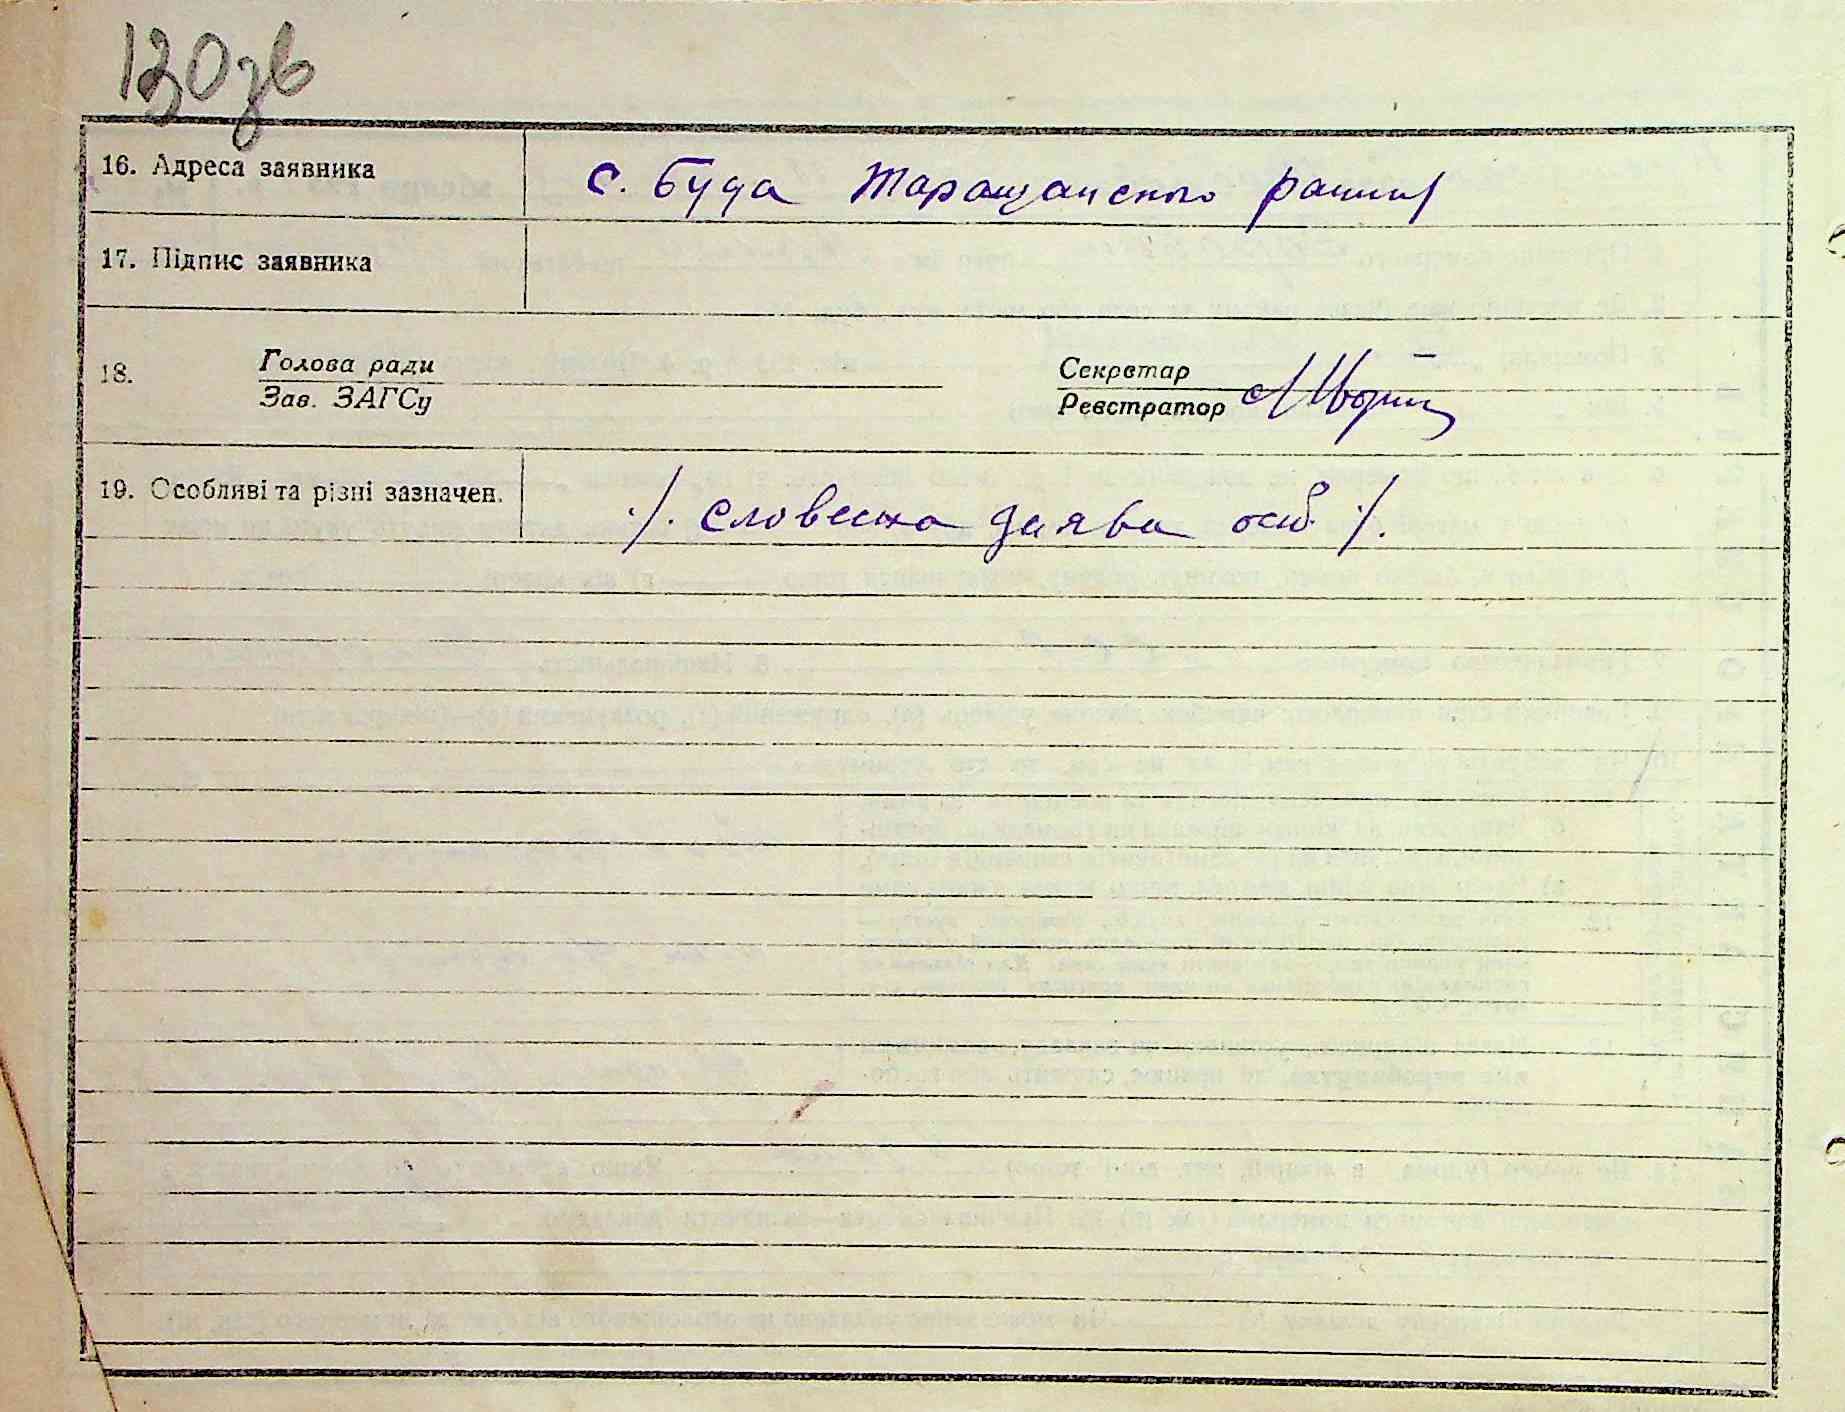 130зв
16. Адреса заявника с. Буда Таращанського району
17. Підпис заявника
18. Голова ради Секретар
Зав. ЗАГСу Реєстратор
19. Особливі та різні зазначен. /. словесна заява осіб /.